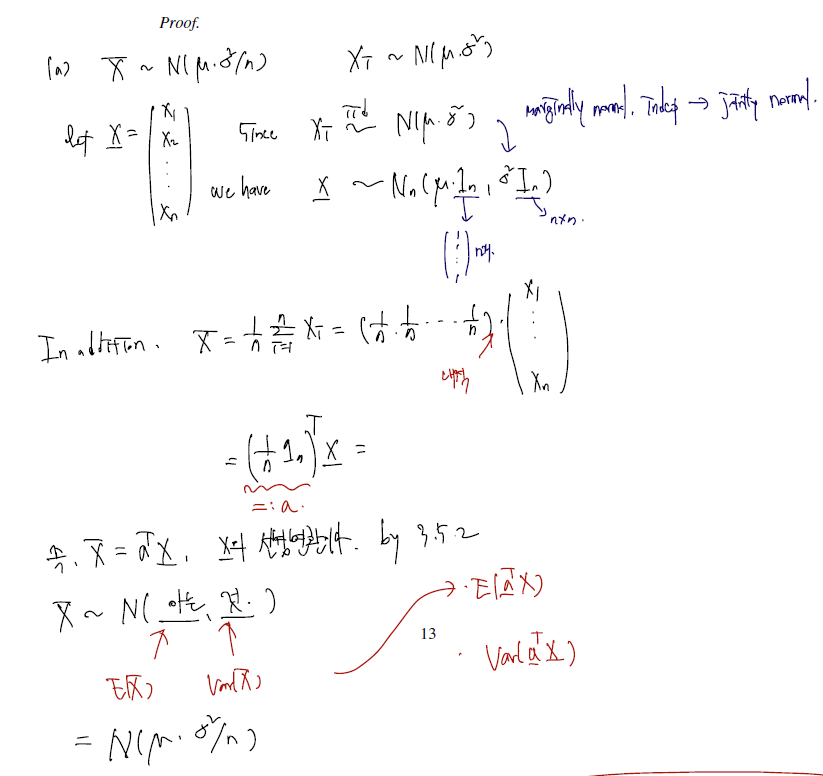 Proof.
(a) X̄ ~ N(μ, σ²/n) Xᵢ ~ N(μ, σ²)
let X = (X₁ X₂ ⋮ Xₙ) Since Xᵢ iid ~ N(μ, σ²) marginally normal, indep → jointly normal.
we have X ~ Nₙ(μ·1ₙ, σ²Iₙ)
n×n.
(1 ⋮ 1) n×1.
In addition, X̄ = 1/n Σᵢ₌₁ⁿ Xᵢ = (1/n, 1/n ⋯ 1/n) · (X₁ ⋮ Xₙ)
= (1/n 1ₙ)ᵀ X =
=: a.
즉, X̄ = aᵀX, X의 by 3.5.2
X̄ ~ N( , )
E(X̄) Var(X̄)
· E(aᵀX)
· Var(aᵀX)
13
= N(μ, σ²/n)